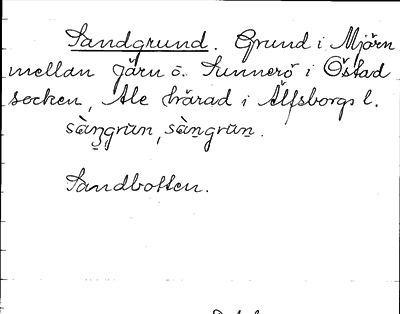 Sandgrund. Grund i Mjörn
mellan Järn ö. Sunnerö i Östad
socken, Ale härad i Älfsborgs l.
sàngrun, sàngrun.
Sandbotten.